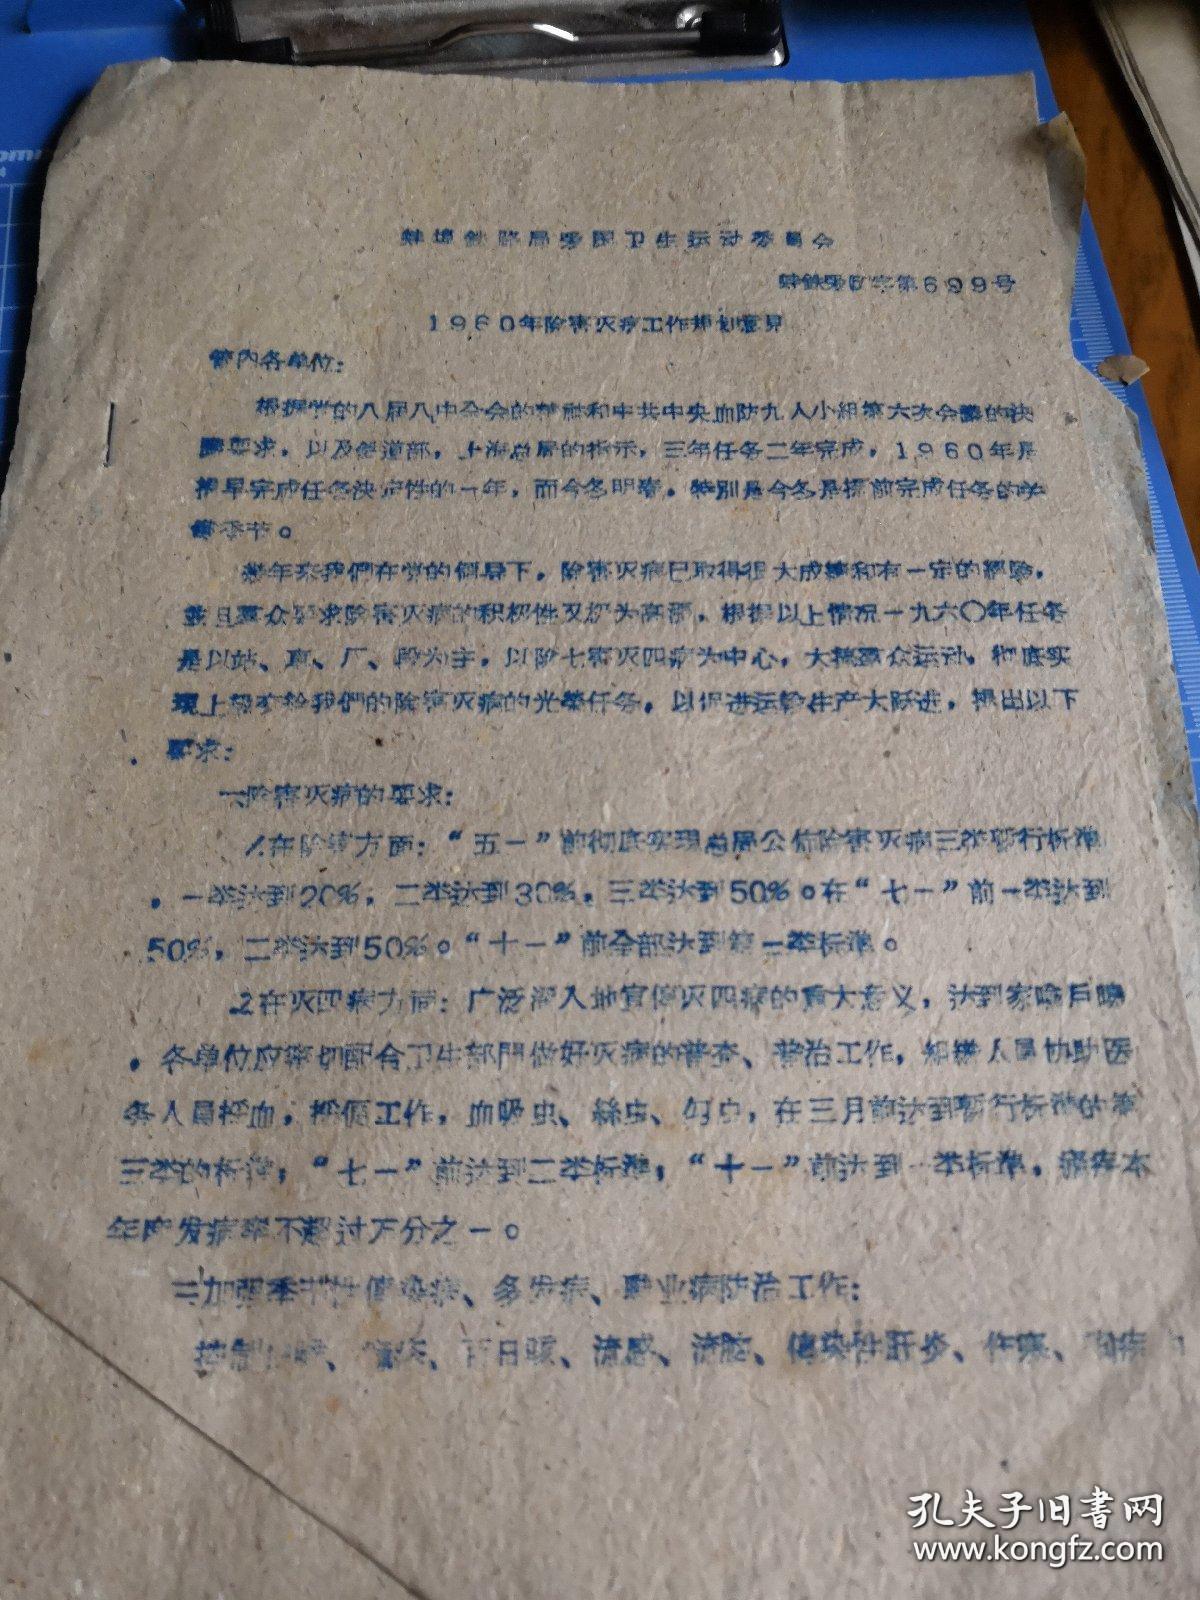 蚌埠铁路局爱国卫生运动委员会
蚌铁爱卫字第699号
1960年除害灭病工作规划意见
管内各单位：
根据党的八届八中全会的精神和中共中央血防九人小組第六次会議的决
議要求，以及鉄道部，上海总局的指示，三年任务二年完成，1960年是
提早完成任务决定性的一年，而今冬明春，特別是今冬是提前完成任务的关
鍵季节。
几年来我們在党的領导下，除害灭病已取得很大成績和有一定的經驗，
並且羣众要求除害灭病的积极性又极为高漲，根据以上情况一九六〇年任务
是以站、車、厂、段为主，以除七害灭四病为中心，大搞羣众运动，彻底实
現上級交給我們的除害灭病的光荣任务，以促进运輸生产大跃进，提出以下
要求：
一、除害灭病的要求：
1.在除害方面：“五一”前彻底实現总局公佈除害灭病三类暫行标准
，一类达到20%，二类达到30%，三类达到50%。在“七一”前一类达到
50%，二类达到50%。“十一”前全部达到第一类标准。
2.在灭四病方面：广泛深入地宣傳灭四病的重大意义，达到家喻戶曉
，各单位应密切配合卫生部門做好灭病的普查、普治工作，組織人員协助医
务人員採血，採便工作，血吸虫、絲虫、钩虫，在三月前达到暫行标准的第
三类的标准，“七一”前达到二类标准，“十一”前达到一类标准，瘧疾本
年度发病率不超过万分之一。
二、加强季节性傳染病、多发病、职业病防治工作：
控制 、 、百日咳、流感、流脑、傳染性肝炎、伤寒、
孔夫子旧书网
www.kongfz.com